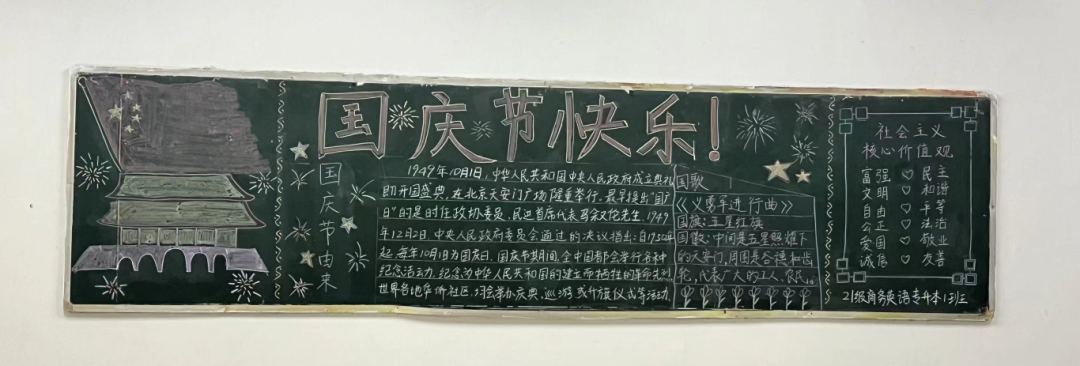 国庆节快乐!
国庆节由来
1949年10月1日,中华人民共和国中央人民政府成立典礼
即开国盛典,在北京天安门广场隆重举行。最早提出"国庆
日"的是时任政协委员、民进首席代表马叙伦先生。1949
年12月2日,中央人民政府委员会通过的决议指出:自1950年
起,每年10月1日为国庆日。国庆节期间,全中国都会举行各种
纪念活动,纪念为中华人民共和国的建立而牺牲的革命先烈
世界各地华侨社区,均会举办庆典、巡游或升旗仪式等活动.
国歌
《义勇军进行曲》
国旗:五星红旗
国徽:中间是五星照耀下
的天安门,周围是谷穗和齿
轮,代表广大的工人、农民。
社会主义
核心价值观
富强 ♡ 民主
文明 ♡ 和谐
自由 ♡ 平等
公正 ♡ 法治
爱国 ♡ 敬业
诚信 ♡ 友善
21级商务英语专升本1班